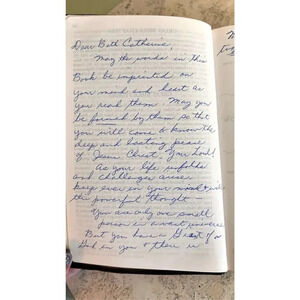 Dear Beth Catherine,
May the words in this
Book be imprinted on
your mind and heart as
you read them. May you
be formed by them so that
you will come to know the
deep and lasting peace
of Jesus Christ, Your Lord!
As your life unfolds
and challenges arise
keep ever in your mind &
the powerful thought —
You are only one small
person in a vast universe
But you have a Great
God in you & there is